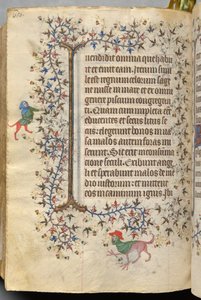 uendidit omnia que habu
it et emit eam. Iterum simi
le est regnum celorum sage
ne misse in mare et ex omni
genere piscium congregan
ti. Quam cum impleta es
educentes et secus litus se
des elegerunt bonos in ua
sa malos autem foras mi
serunt. Sic erit
seculi. Exibunt ange
li et separabunt malos de me
dio iustorum et mittent
eos in caminum ignis. Ibi